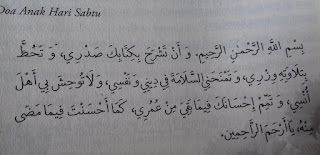 Doa Anak Hari Sabtu
بِسْمِ اللهِ الرَّحْمٰنِ الرَّحِيْمِ. وَ أَنْ تَشْرَحَ بِكِتَابِكَ صَدْرِي، وَ تَحُطَّ
بِتِلَاوَتِهِ وِزْرِي، وَ تَمْنَحَنِيَ السَّلَامَةَ فِي دِيْنِي وَ نَفْسِي، وَ لَا تُوْحِشَ بِي أَهْلَ
أُنْسِي، وَ تُتِمَّ إِحْسَانَكَ فِيْمَا بَقِيَ مِنْ عُمُرِي، كَمَا أَحْسَنْتَ فِيْمَا مَضَى
مِنْهُ، يَا أَرْحَمَ الرَّاحِمِيْنَ.